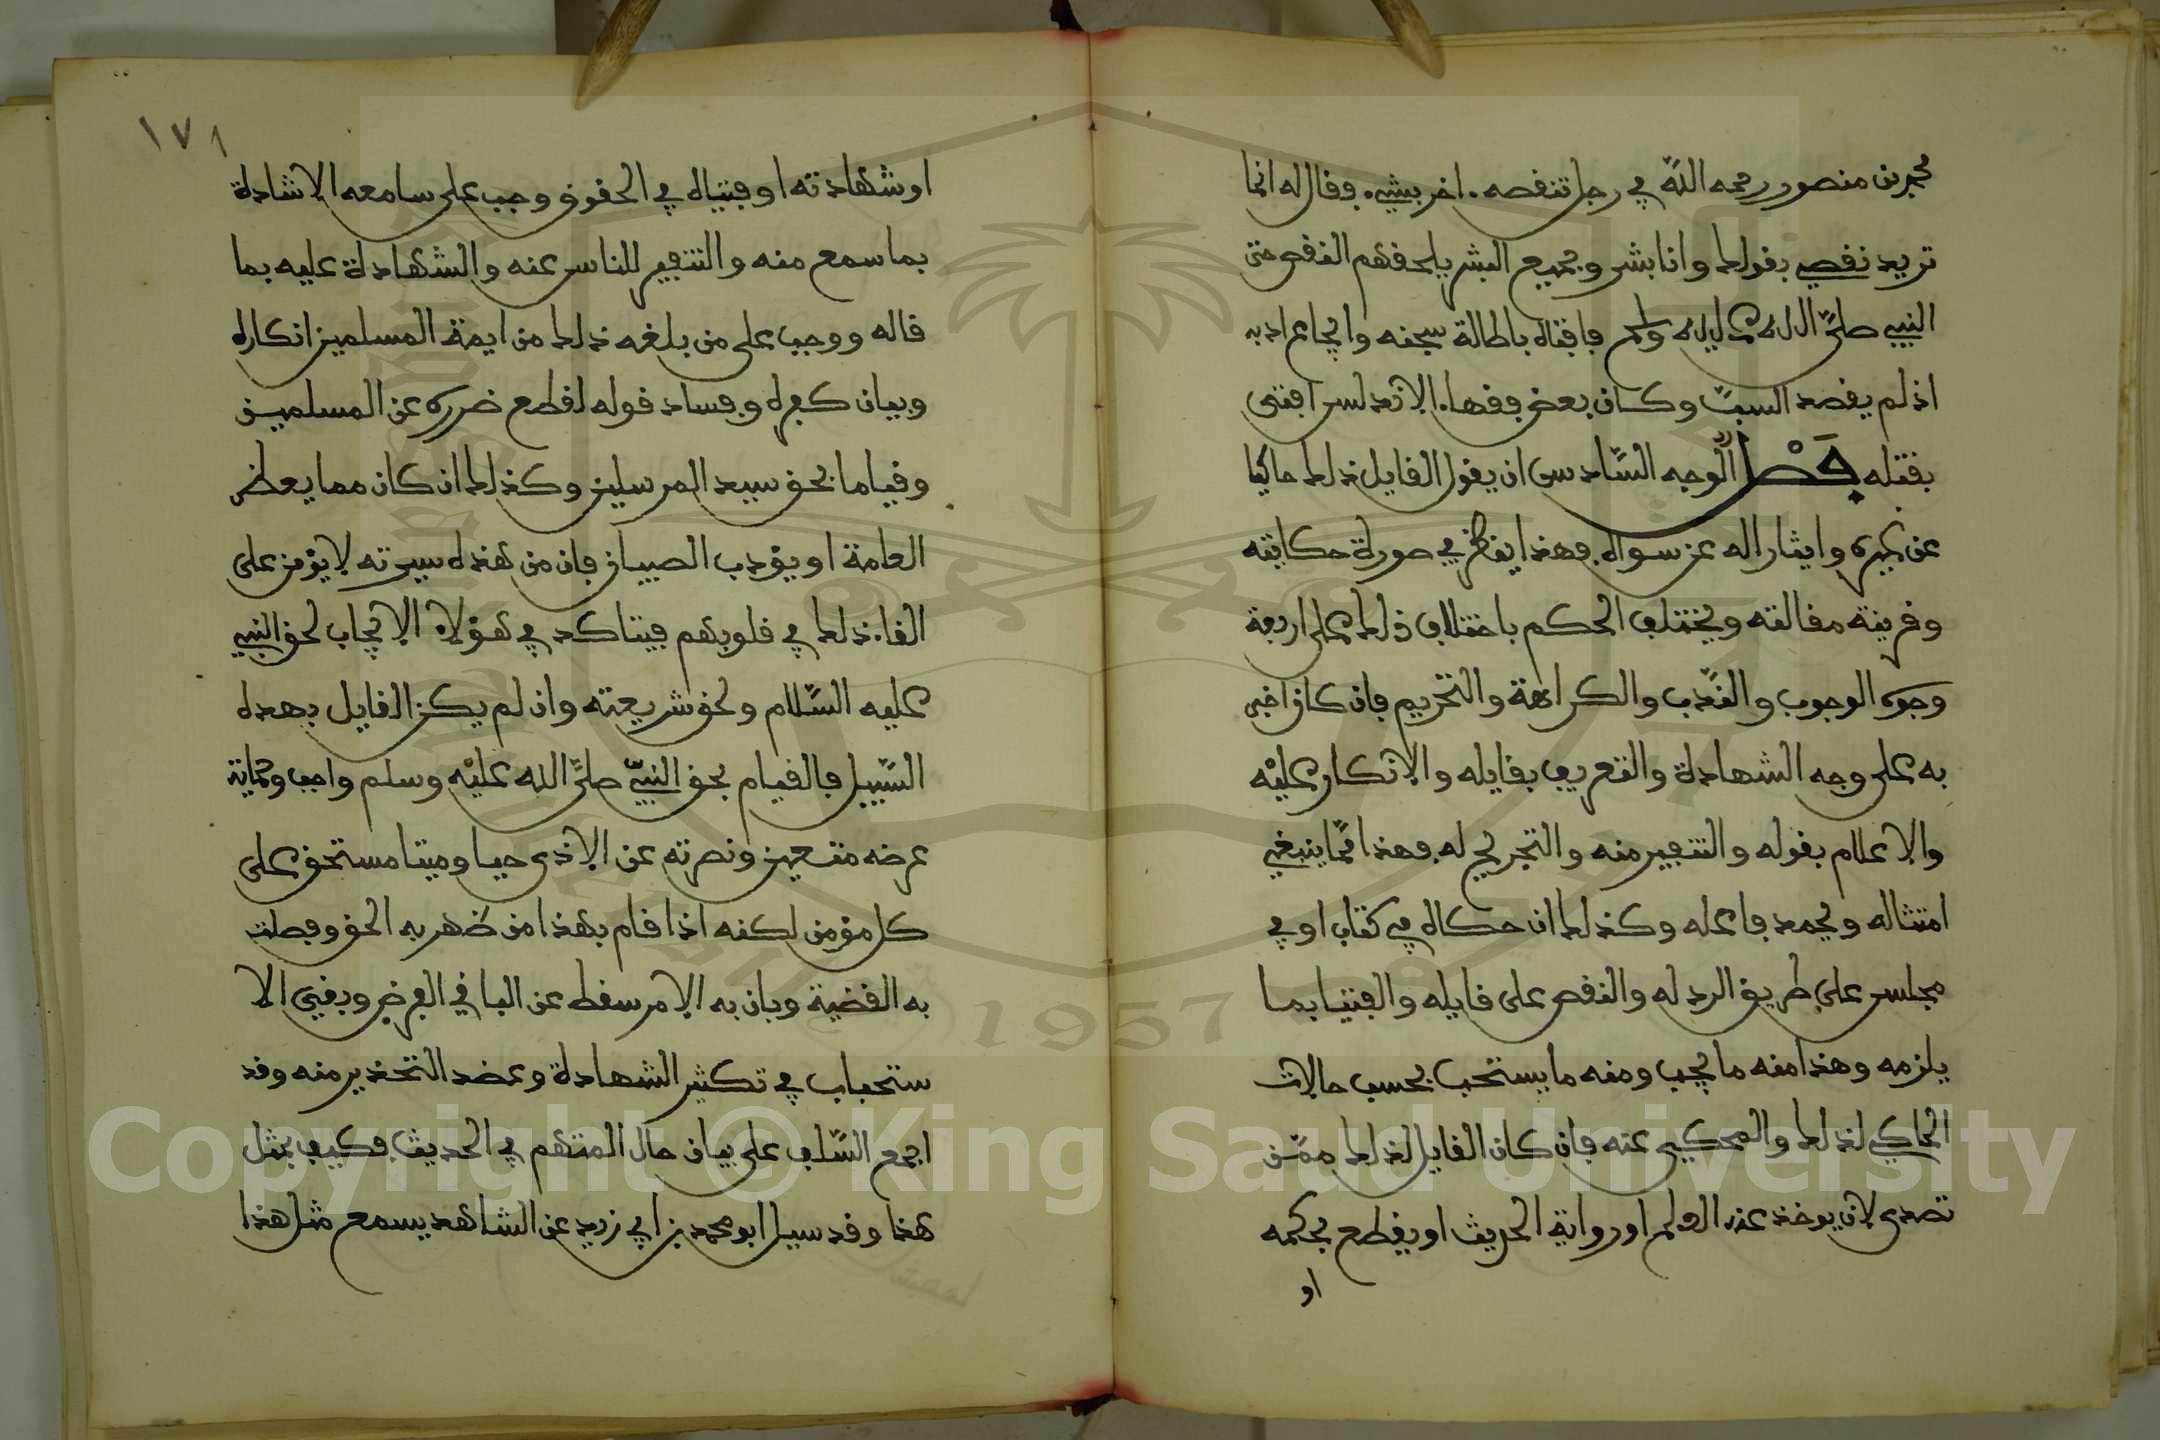 محمد بن منصور رحمه الله في رجل تنقصه . اخر بشيء . فقال له انما
تريد نقصي بقولك وانا بشر وجميع البشر يلحقهم النقص حتى
النبي صلى الله عليه وسلم فافتاه باطالة سجنه وايجاع ادبه
اذ لم يقصد السب وكان بعض فقهاء الاندلس افتى
بقتله فصل الوجه السادس ان يقول القايل ذلك حاكيا
عن غيره وايثارا له عن سواه فهذا ينظر في صورة حكايته
وقرينة مقالته ويختلف الحكم باختلاف ذلك على اربعة
وجوه الوجوب والندب والكراهة والتحريم فان كان اخبر
به على وجه الشهادة والتعريف بقايله والانكار عليه
والاعلام بقوله والتنفير منه والتجريح له فهذا مما ينبغي
امتثاله ويحمد فاعله وكذلك ان حكاه في كتاب او في
مجلس على طريق الرد له والنقص على قايله والفتيا بما
يلزمه وهذا منه ما يجب ومنه ما يستحب بحسب حالات
الحاكي لذلك والمحكي عنه فان كان القايل لذلك ممن
تصدى لان يوخذ عنه العلم او رواية الحديث او يقطع بحكمه
او
١٧١
او شهادته او فتياه في الحقوق وجب على سامعه الاشادة
بما سمع منه والتنفير للناس عنه والشهادة عليه بما
قاله ووجب على من بلغه ذلك من ايمة المسلمين انكاره
وبيان كفره وفساد قوله لقطع ضرره عن المسلمين
وقياما بحق سيد المرسلين وكذلك ان كان مما يعظ
العامة او يؤدب الصبيان فان من هذه سيرته لا يؤمن على
القاء ذلك في قلوبهم فيتاكد في هؤلاء الايجاب لحق النبي
عليه السلام ولحق شريعته وان لم يكن القايل بهذه
السبيل فالقيام بحق النبي صلى الله عليه وسلم واجب وحماية
عرضه متعين ونصرته عن الاذى حيا وميتا مستحق على
كل مؤمن لكنه اذا قام بهذا من ظهر به الحق وفصلت
به القضية وبان به الامر سقط عن الباقي الفرض وبقي الا
ستحباب في تكثير الشهادة وعضد التحذير منه وقد
اجمع السلف على بيان حال المتهم في الحديث فكيف بمثل
هذا وقد سيل ابو محمد بن ابي زيد عن الشاهد يسمع مثل هذا
Copyright © King Saud University
1957